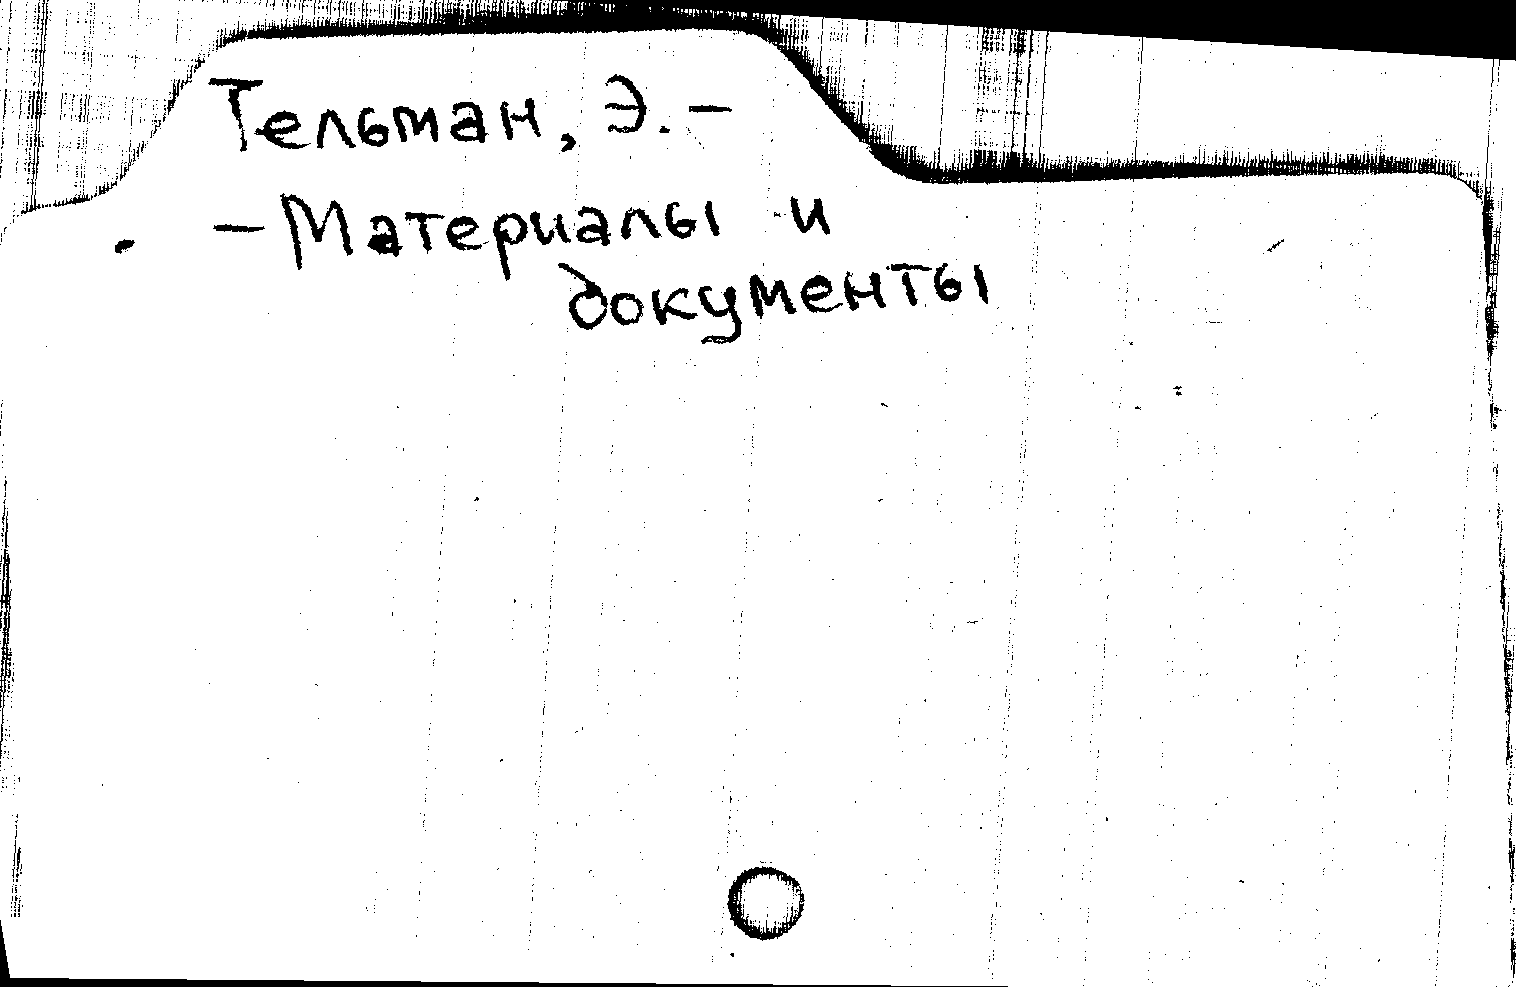 Тельман, Э. –
– Материалы и
документы